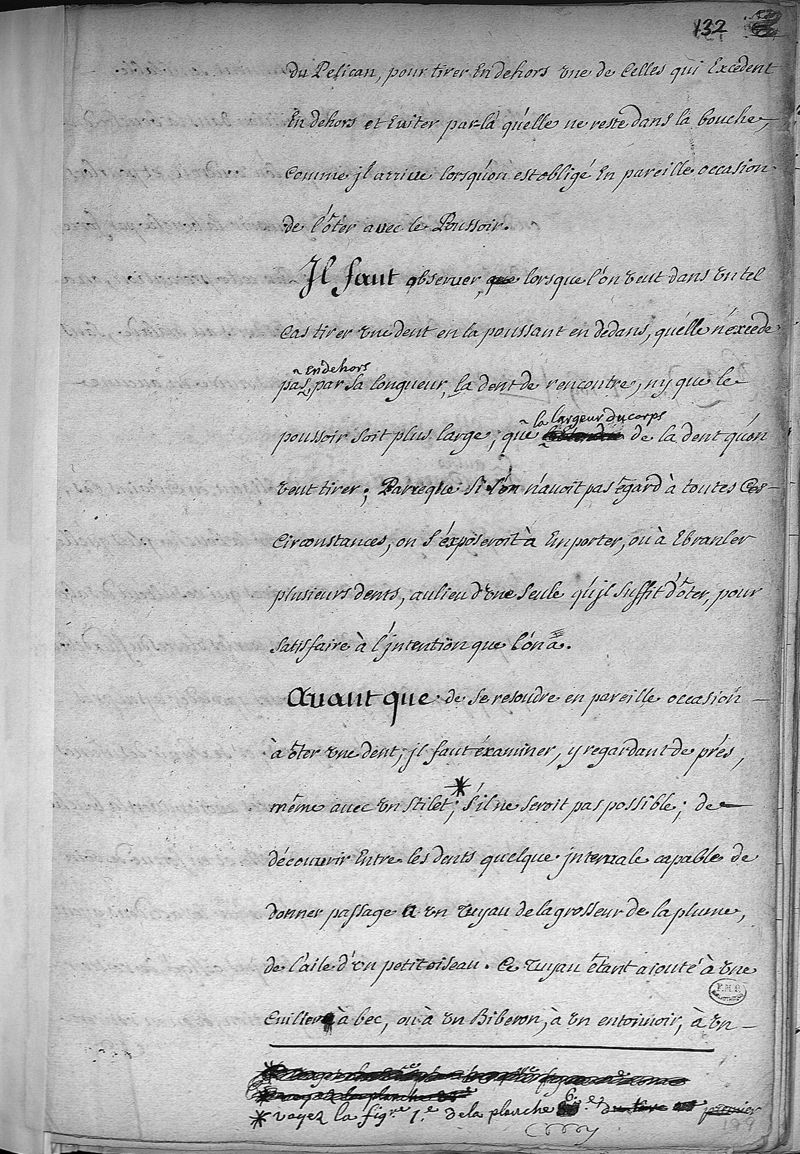 132
du Pelican, pour tirer En dehors vne de Celles qui Excedent
En dehors et Eviter par-là qu'elle ne reste dans la bouche,
Comme jl arrive lorsqu'on est obligé En pareille occasion
de l'ôter avec le Poussoir.
Jl faut observer, que lorsque l'on veut dans un tel
Cas tirer vne dent en la poussant en dedans, quélle n'éxcede
en dehors
pas, par sa longueur, la dent de rencontre, ny que le
la largeur du corps
poussoir soit plus large, que de la dent qu'on
veut tirer; Parceque Si l'on n'avoit pas égard à toutes Ces
Circonstances, on S'éxposeroit à Emporter, ou à Ebranler
plusieurs dents, au lieu d'vne Seule qu'jl Suffit d'ôter, pour
Satisfaire à l'jntention que l'on a.
Avant que de Se resoudre en pareille occasion
à ôter vne dent, jl faut éxaminer, y regardant de prés,
même avec vn Stilet;* S'il ne Seroit pas possible; de
découvrir Entre les dents quelque jntervale capable de
donner passage a vn Tuyau de la grosseur de la plume,
de l'aile d'vn petit oiseau. Ce Tuyau étant ajouté à vne
Cuillere à bec, ou à vn Biberon, à vn entonnoir, à vn
* voyez la fig.re 1.e de la planche 6.e du premier
199